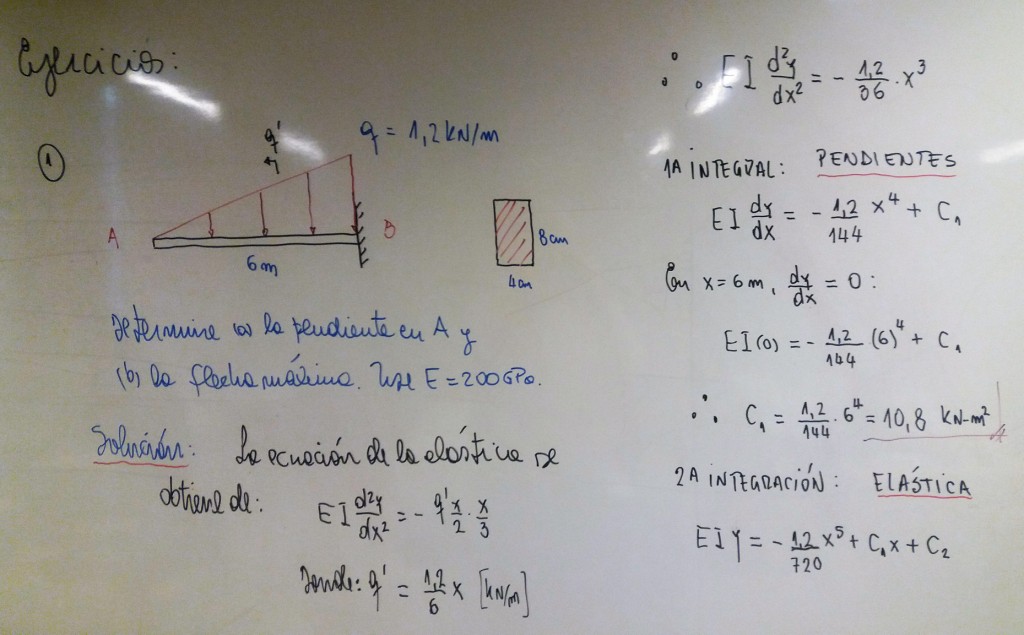 Ejercicios:
①
q'
q = 1,2 kN/m
A
B
6m
8cm
4cm
Determine (a) la pendiente en A y
(b) la flecha máxima. Use E = 200 GPa.
Solución: La ecuación de la elástica se
obtiene de: EI d²y/dx² = - q' x/2 · x/3
Donde: q' = 1,2/6 x [kN/m]
∴ EI d²y/dx² = - 1,2/36 · x³
1A INTEGRAL: PENDIENTES
EI dy/dx = - 1,2/144 x⁴ + C₁
En x = 6m, dy/dx = 0:
EI(0) = - 1,2/144 (6)⁴ + C₁
∴ C₁ = 1,2/144 · 6⁴ = 10,8 KN-m²
2A INTEGRACIÓN: ELÁSTICA
EIY = - 1,2/720 x⁵ + C₁x + C₂